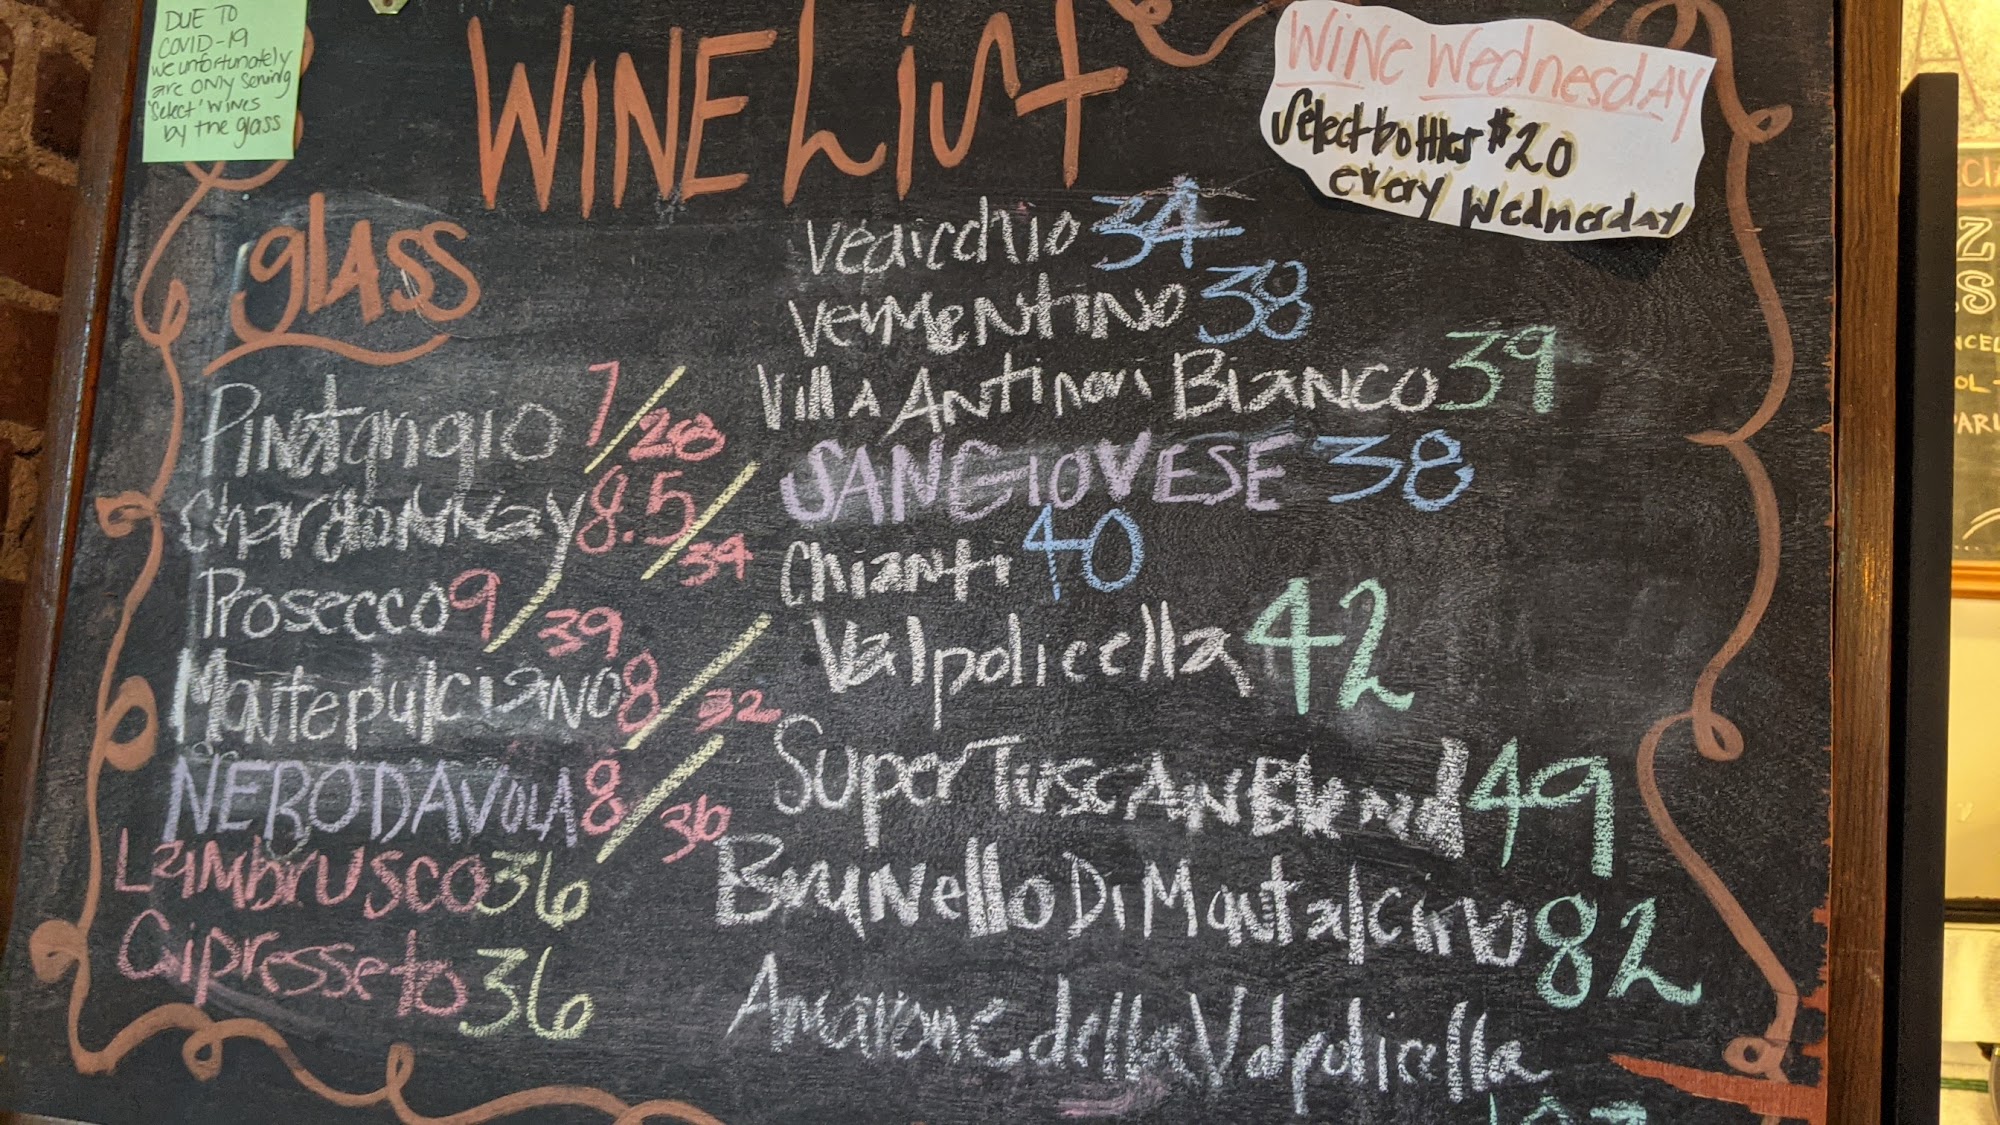 DUE TO
COVID-19
we unfortunately
are only serving
'select' wines
by the glass
WINE List
Wine Wednesday
Select bottles $20
every Wednesday
glass
Pinot grigio 7/28
Chardonnay 8.5/34
Prosecco 9/39
Montepulciano 8/32
NERO DAVOLA 8/36
Lambrusco 36
Cipresseto 36
Verdicchio 34
Vermentino 38
Villa Antinori Bianco 39
SANGIOVESE 38
Chianti 40
Valpolicella 42
Super Tuscan Blend 49
Brunello Di Montalcino 82
Amarone della Valpolicella